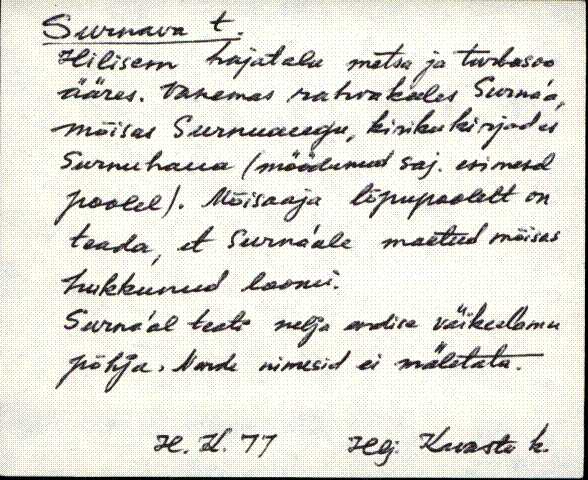 Surnava t.
Hilisem hajatalu metsa ja turbasoo
ääres. Vanemas rahvakeeles Surnáa,
mõisas Surnuaeegu, kirikukirjades
Surnuhaua (möödunud saj. esimesel
poolel). Mõisaaja lõpupoolelt on
teada, et Surnáale maetud mõisas
hukkunud loomi.
Surnáal teati nelja endise väikeelamu
põhja. Nende nimesid ei mäletata.
H. K. 77 Hlj. Kavastu k.